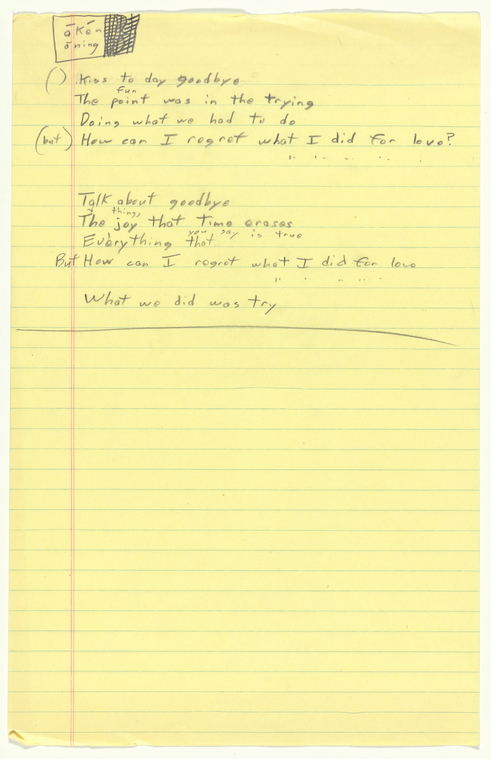 āKén
āning
( ) Kiss to day goodbye
fun
The point was in the trying
Doing what we had to do
(but) How can I regret what I did for love?
" " " " "
Talk about goodbye
things
The joy that time erases
you say is true
Everything that
But How can I regret what I did for love
" " " " "
What we did was try